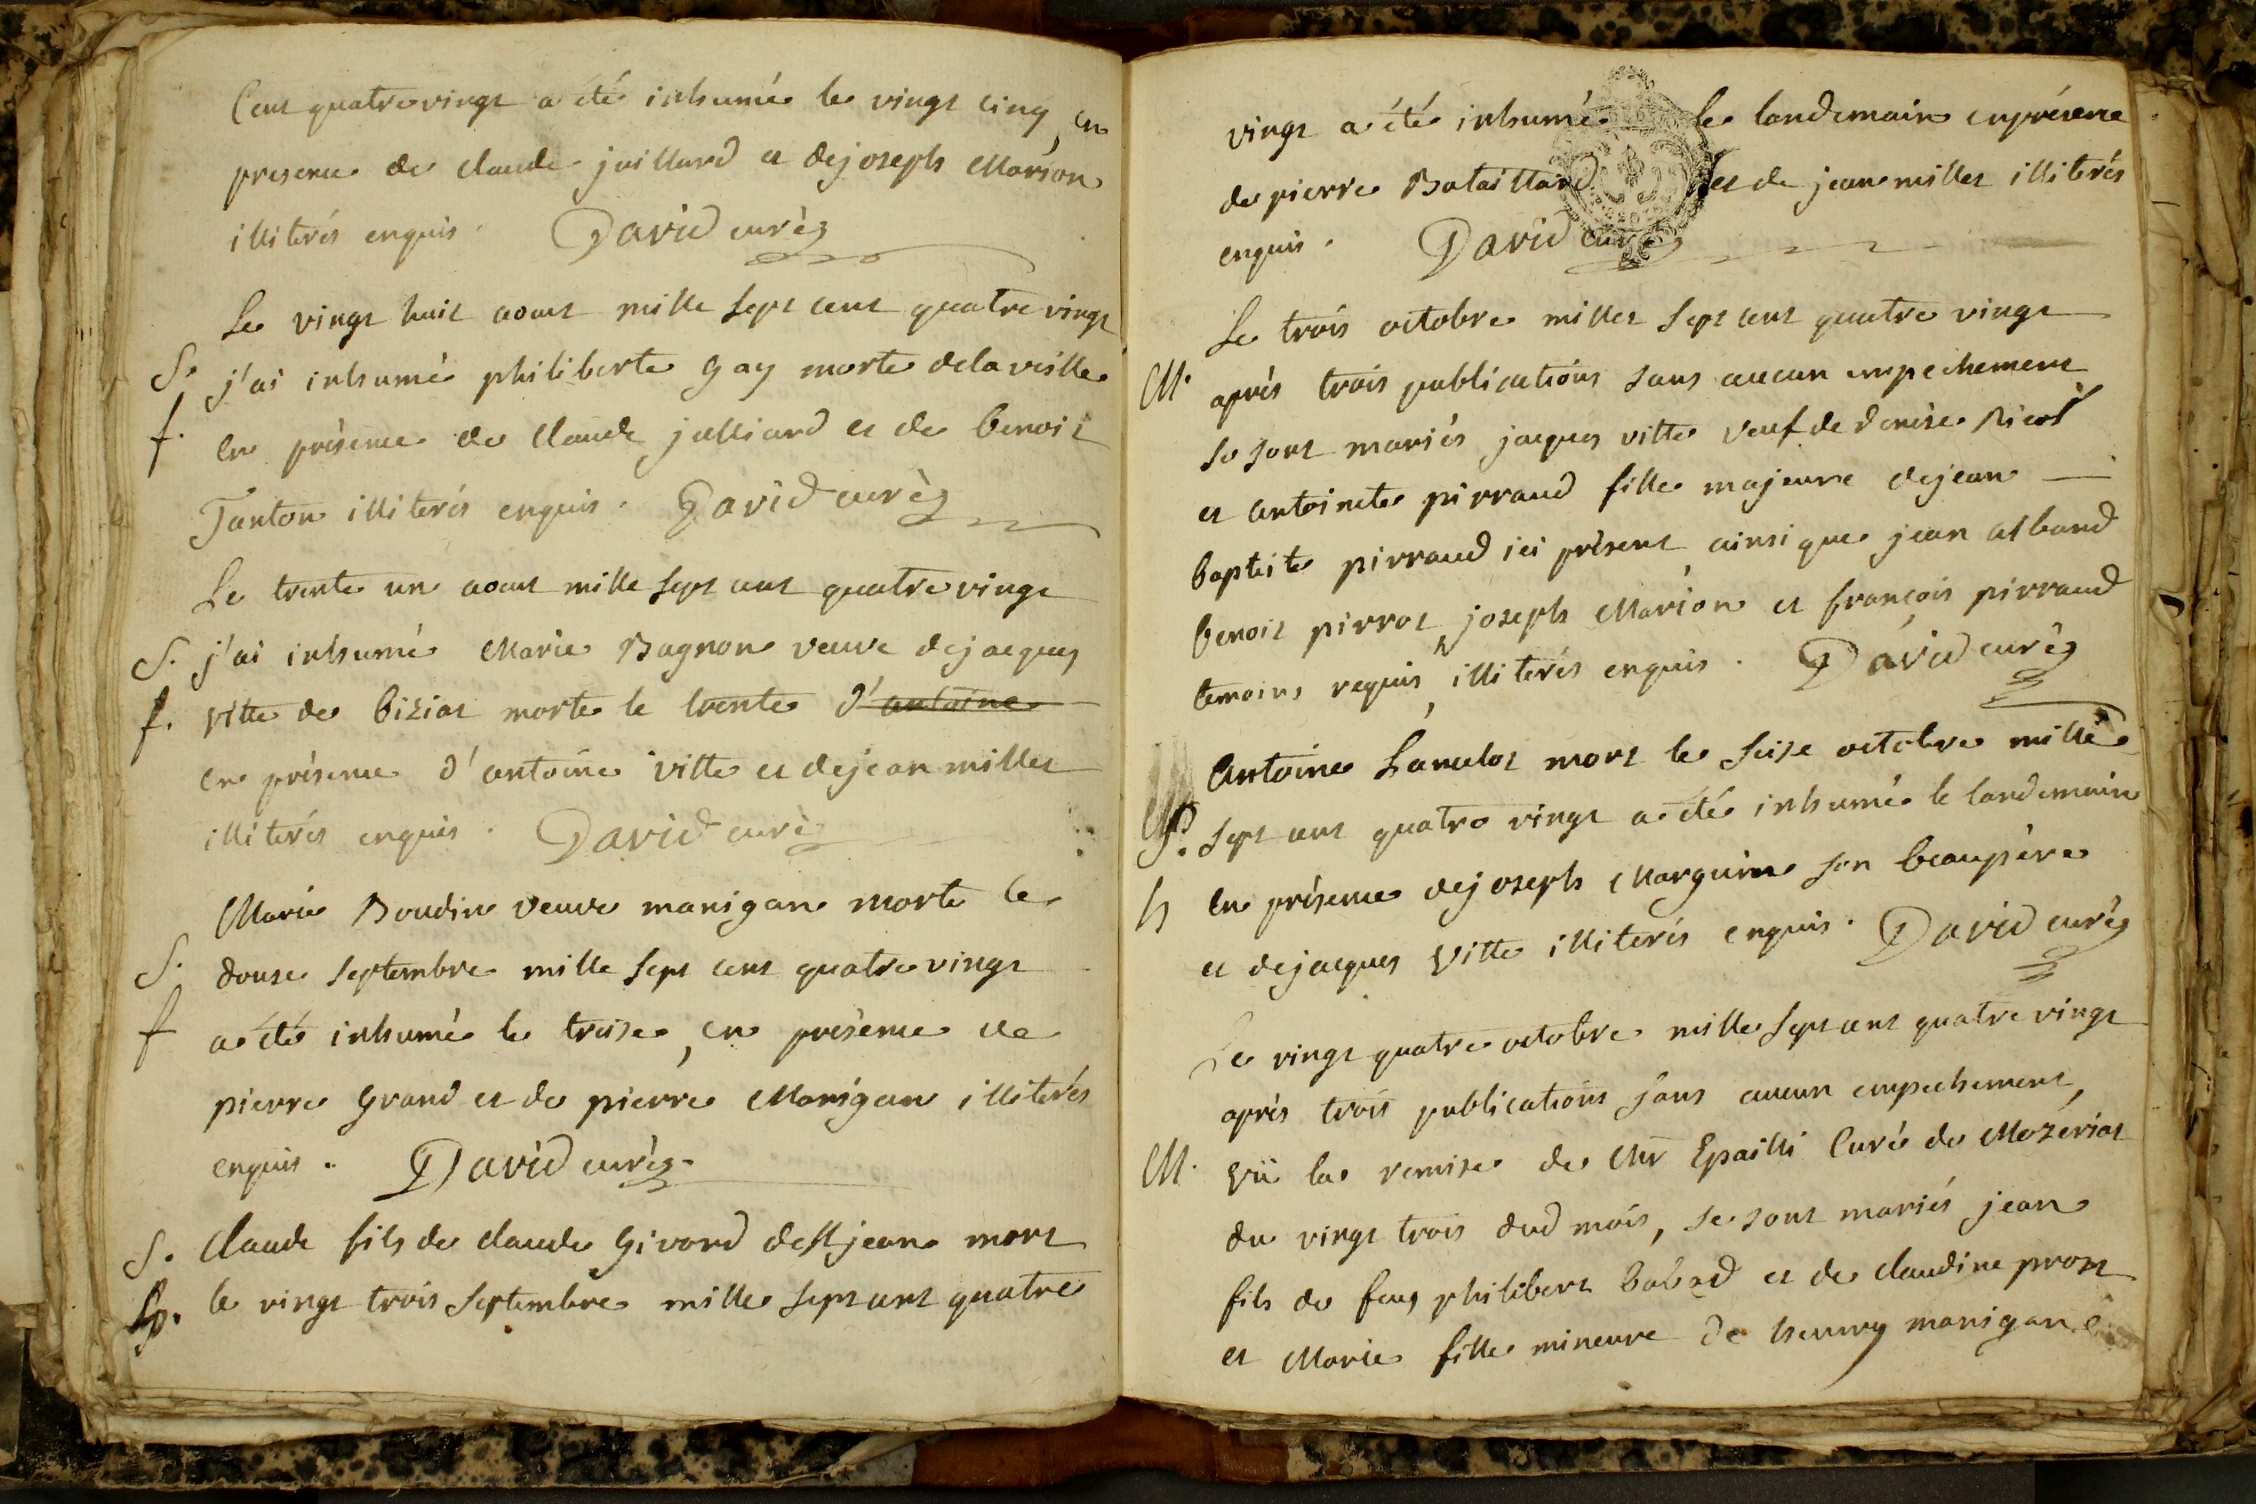 Cent quatrevingt a été inhumé le vingt cinq, en
presence de claude juillard et de joseph Marion
illiterés enquis. David curé
Le vingt huit aout mille sept cent quatrevingt
S. j'ai inhumé philiberte gay morte de la veille
f. en présence de claude julliard et de benoit
Tanton illiterés enquis. David curé
Le trente un aout mille sept cent quatrevingt
S. j'ai inhumé Marie Bagnon veuve de jacques
f. vitte de biziat morte le trente d'antoine
en présence d'antoine vitte et de jean millet
illiterés enquis. David curé
Marie Boudin veuve manigan morte le
S. douse septembre mille sept cent quatrevingt
f a été inhumé le treise, en présence de
pierre Grand et de pierre Manigan illiterés
enquis. David curé
S. Claude fils de claude Givord de St jean mort
le vingt trois septembre mille sept cent quatre
vingt a été inhumé le landemain en présence
de pierre Bataillard et de jean millet illiterés
enquis. David curé
Le trois octobre mille sept cent quatre vingt
M. après trois publications sans aucun empechement
se sont mariés jacques vitte veuf de denise
et antoinete pirraud fille majeure de jean
baptiste pirraud ici présent ainsi que jean alband
benoit pirrot, joseph Marion et françois pirraud
temoins requis, illiterés enquis. David curé
Antoine Lancelot mort le seise octobre mille
S. sept cent quatre vingt a été inhumé le landemain
h en présence de joseph Marguin son beaupère
et de jacques Vitte illiterés enquis. David curé
Le vingt quatre octobre mille sept cent quatre vingt
après trois publications sans aucun empechement,
M. vü la remise de Mr Epailli Curé de Mézériat
du vingt trois dud mois, se sont mariés jean
fils de feu philibert babad et de claudine prost
et Marie fille mineure de henry manigan